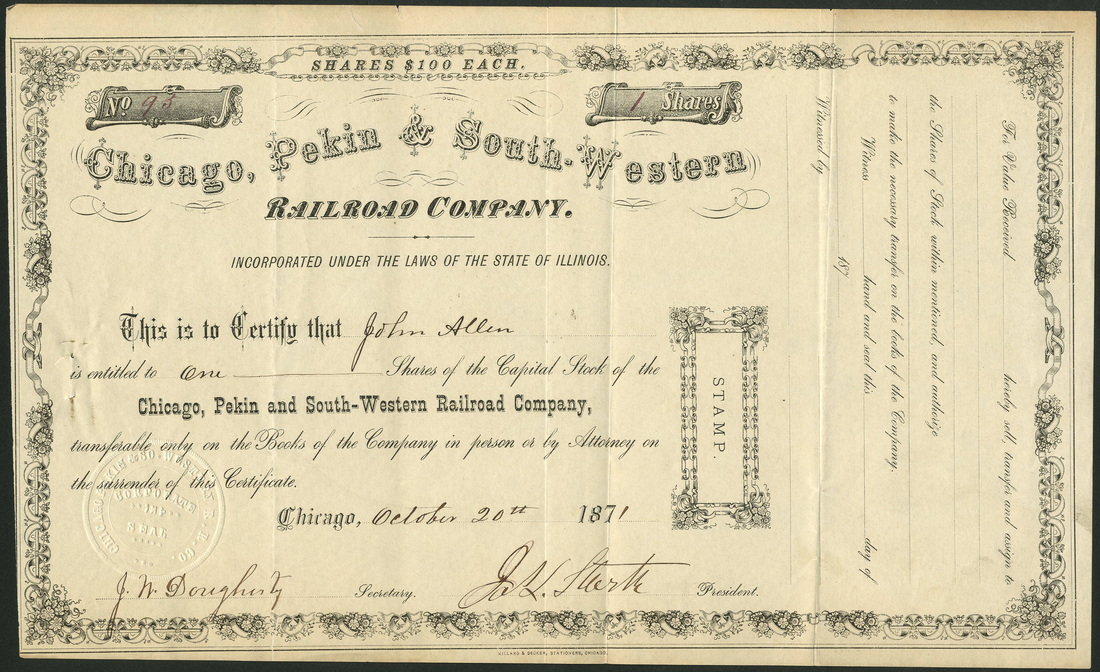 SHARES $100 EACH.
No 93
1 Shares
Chicago, Pekin & South-Western
RAILROAD COMPANY.
INCORPORATED UNDER THE LAWS OF THE STATE OF ILLINOIS.
This is to Certify that John Allen
is entitled to One Shares of the Capital Stock of the
Chicago, Pekin and South-Western Railroad Company,
transferable only on the Books of the Company in person or by Attorney on
the surrender of this Certificate.
Chicago, October 20th 1871
J. W. Dougherty Secretary.
President.
STAMP.
CORPORATE
SEAL
For Value Received hereby sell, transfer and assign to
the Shares of Stock within mentioned, and authorize
to make the necessary transfer on the books of the Company.
Witness hand and seal this day of
187
Witnessed by
STATIONERS, CHICAGO.